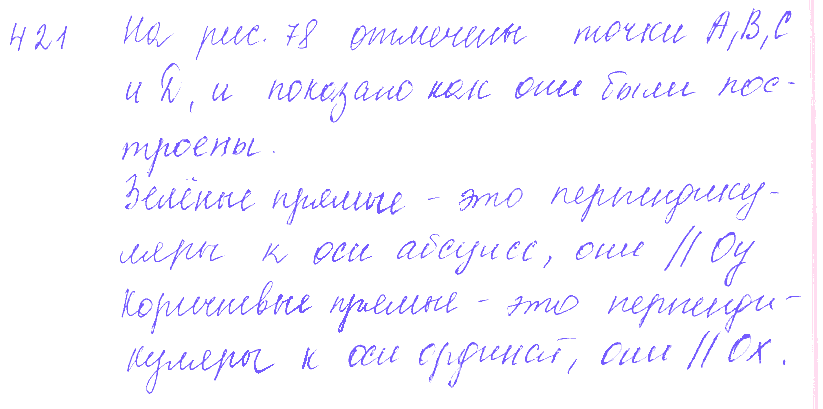 421 На рис. 78 отмечены точки A, B, C
и D, и показано как они были пос-
троены.
Зелёные прямые - это перпендику-
ляры к оси абсцисс, они // Oy
Коричневые прямые - это перпенди-
куляры к оси ординат, они // Ox.